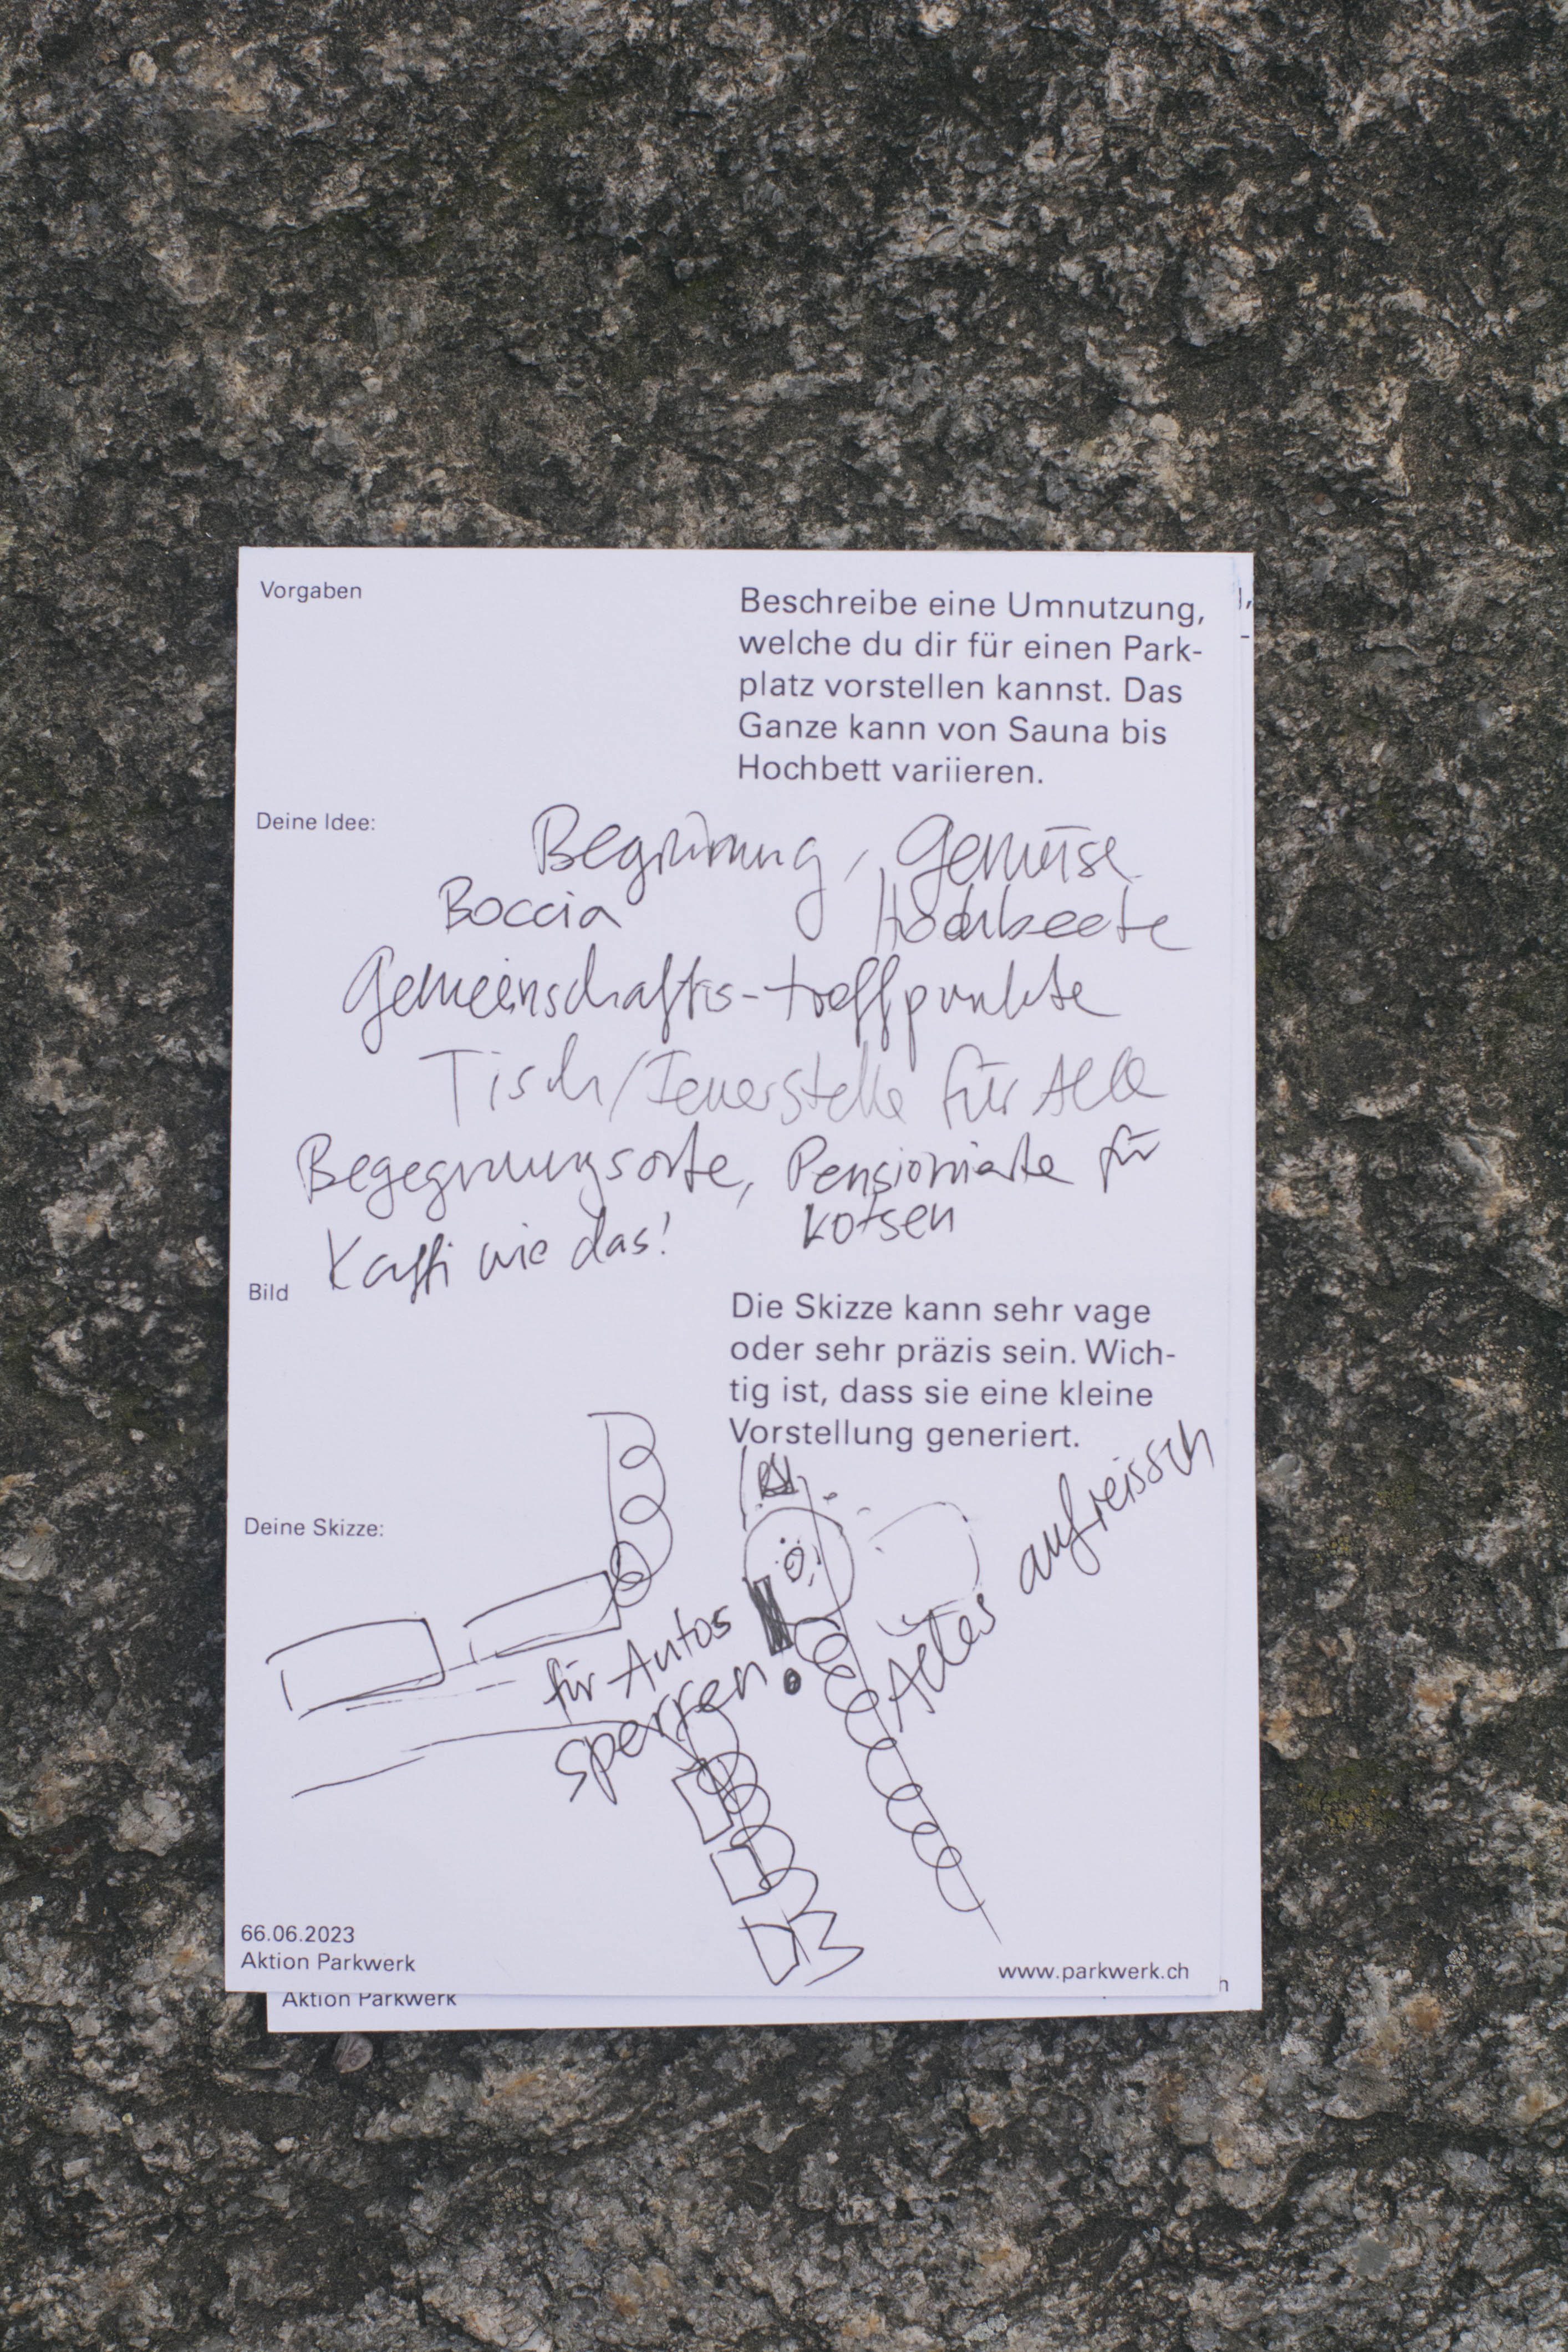 Vorgaben
Beschreibe eine Umnutzung,
welche du dir für einen Park-
platz vorstellen kannst. Das
Ganze kann von Sauna bis
Hochbett variieren.
Deine Idee:
Begrünung, Gemüse
Boccia Hochbeete
Gemeinschafts-treffpunkte
Tisch/Feuerstelle für Alle
Begegnungsorte, Pensionierte für
Kaffi wie das!
Bild
Die Skizze kann sehr vage
oder sehr präzis sein. Wich-
tig ist, dass sie eine kleine
Vorstellung generiert.
Deine Skizze:
für Autos
sperren!
aufreissen
66.06.2023
Aktion Parkwerk
www.parkwerk.ch
Aktion Parkwerk